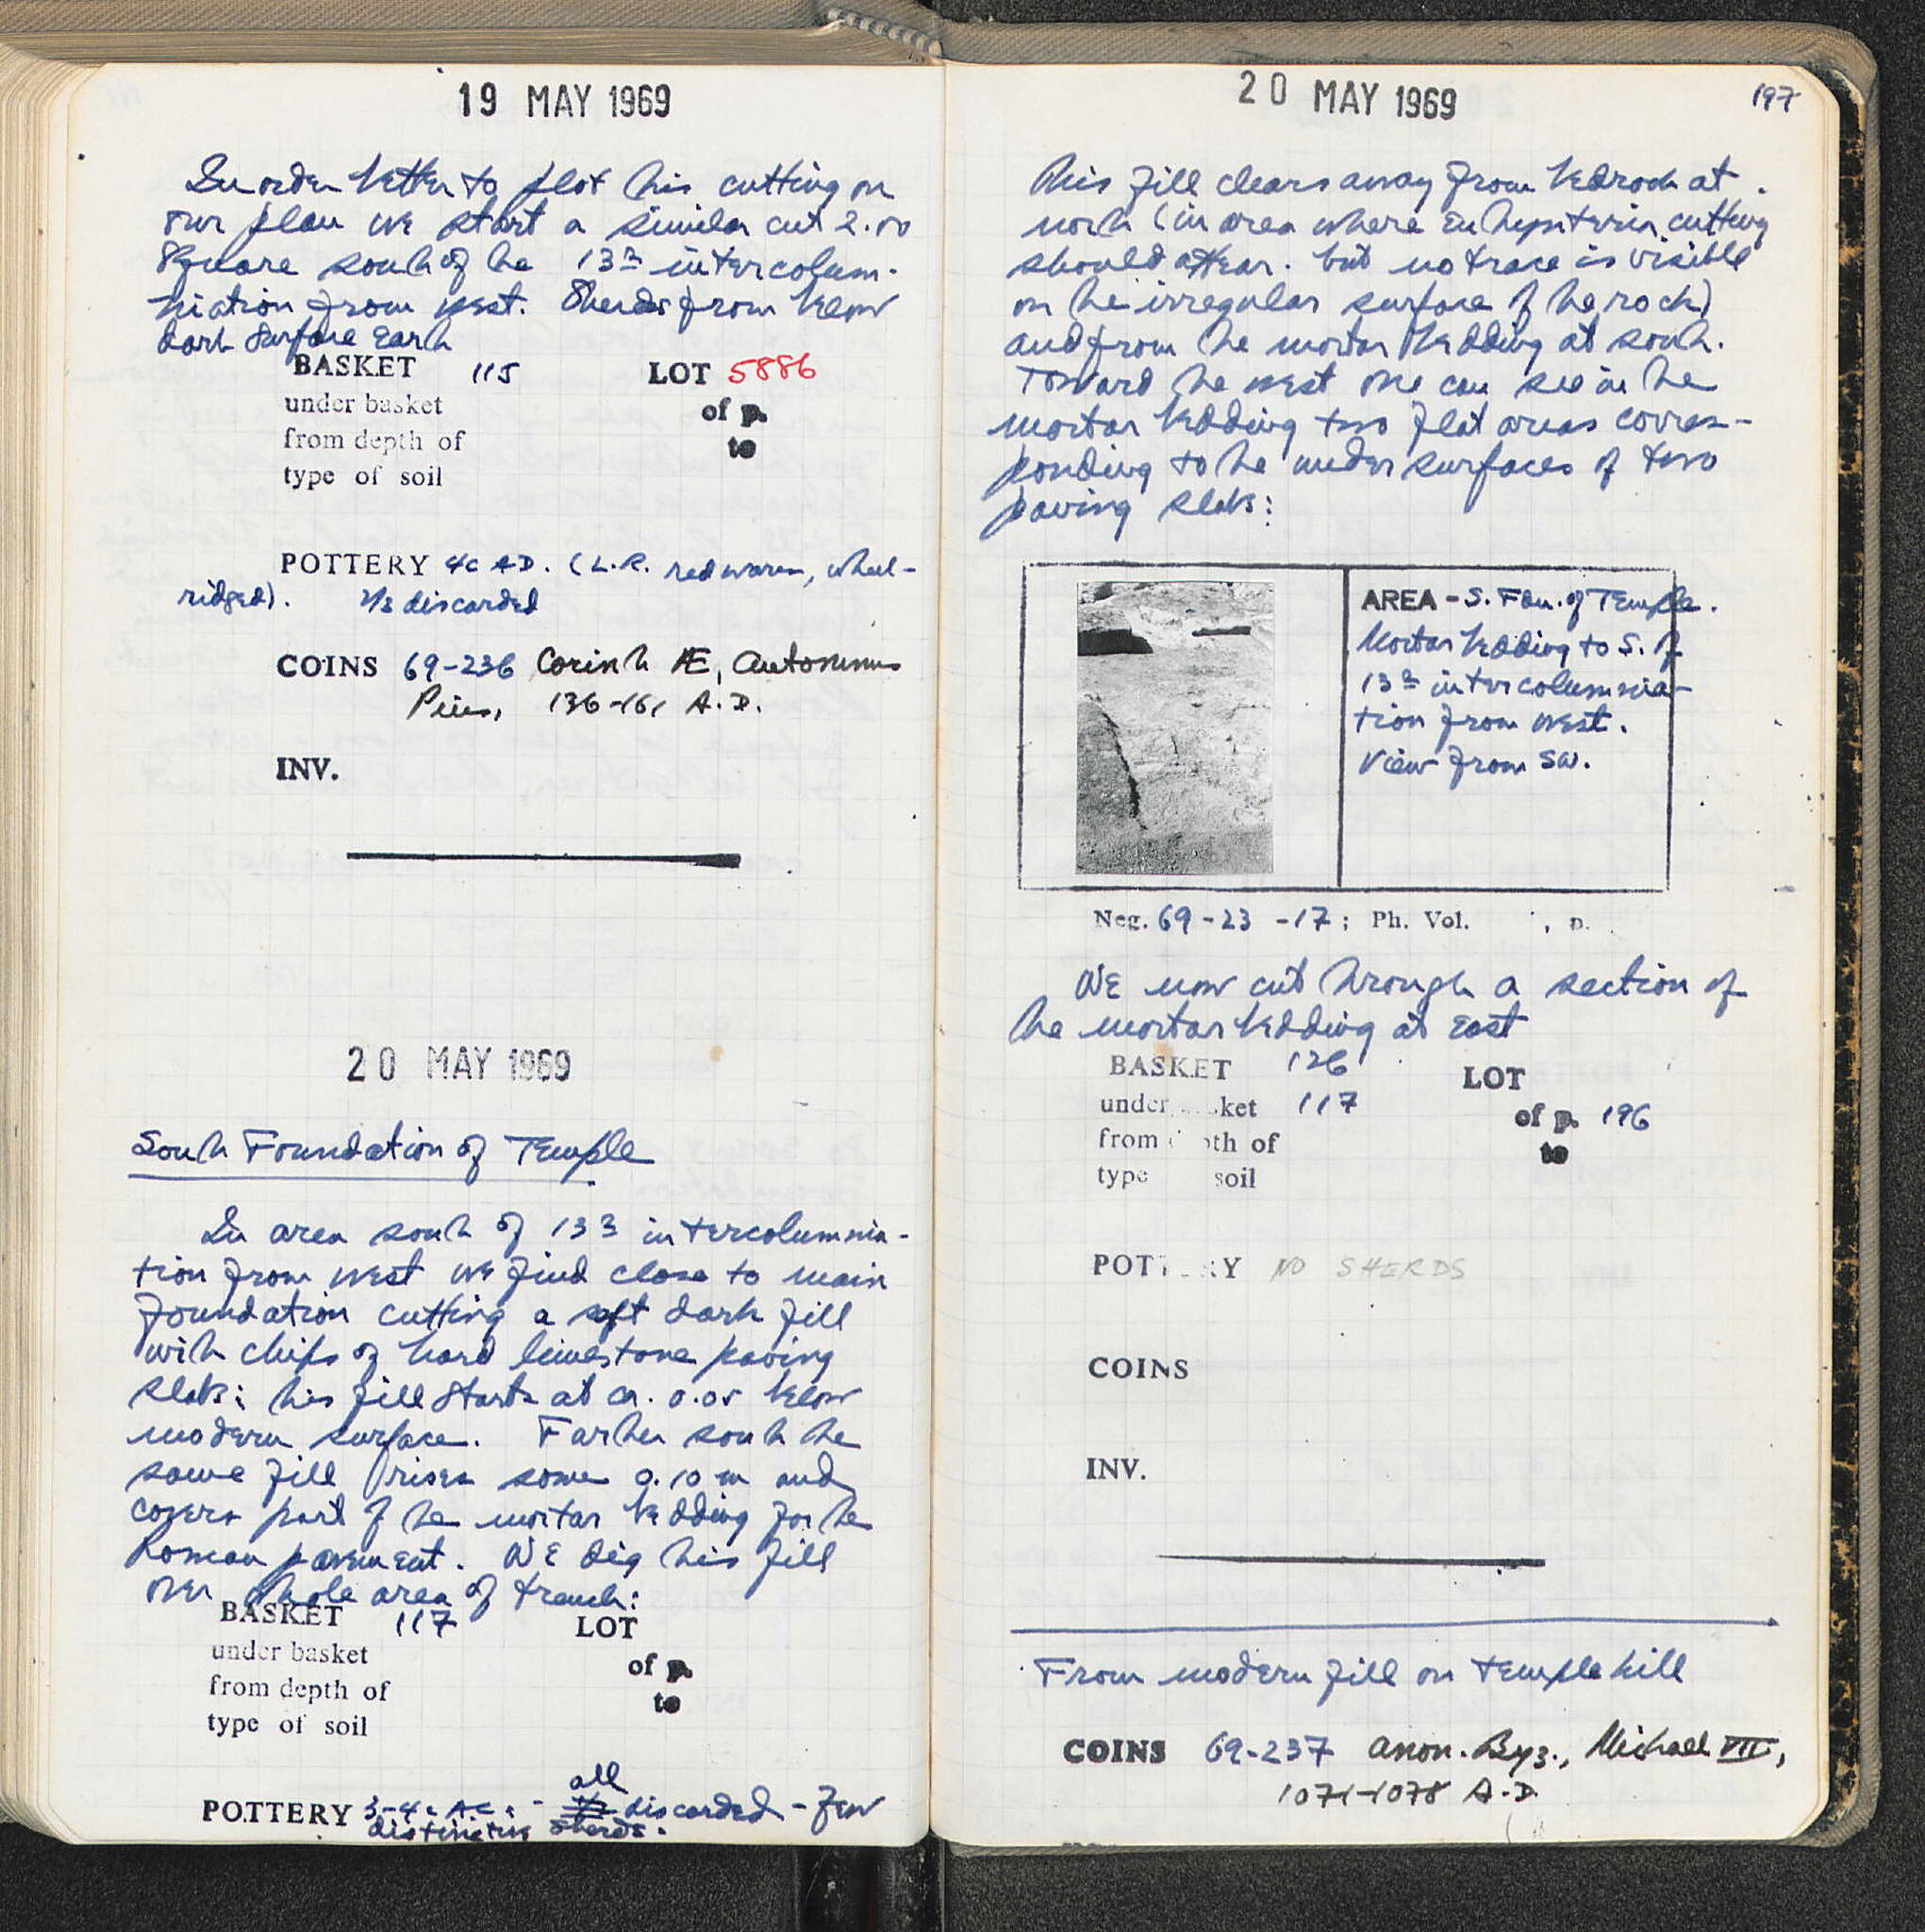 19 MAY 1969
In order better to plot this cutting on
our plan we start a similar cut 2.00
square south of the 13th intercolum-
niation from west. Sherds from below
dark surface earth
BASKET 115 LOT 5886
under basket of p.
from depth of to
type of soil
POTTERY 4c AD. (L.R. red wares, wheel-
ridged). 2/3 discarded
COINS 69-236 Corinth Æ, Antoninus
Pius, 136-161 A.D.
INV.
20 MAY 1969
South Foundation of Temple
In area south of 13th intercolumnia-
tion from west we find close to main
foundation cutting a soft dark fill
with chips of hard limestone paving
slabs; this fill starts at ca. 0.05 below
modern surface. Farther south the
same fill rises some 0.10 m and
covers part of the mortar bedding for the
Roman pavement. We dig this fill
over whole area of trench:
BASKET 117 LOT
under basket of p.
from depth of to
type of soil
all
POTTERY 3-4c - discarded - few
distinctive sherds.
20 MAY 1969
197
This fill clears away from bedrock at
north (in area where euthynteria cutting
should appear. but no trace is visible
on the irregular surface of the rock)
and from the mortar bedding at south.
Toward the west one can see in the
mortar bedding two flat areas corres-
ponding to the under surfaces of two
paving slabs:
AREA - S. Fdn. of Temple.
Mortar bedding to S. of
13th intercolumnia-
tion from west.
View from SW.
Neg. 69-23-17; Ph. Vol. , p.
We now cut through a section of
the mortar bedding at east
BASKET 126 LOT
under basket 117 of p. 196
from depth of to
type soil
POTTERY NO SHERDS
COINS
INV.
From modern fill on temple hill
COINS 69-237 Anon. Byz., Michael VII,
1071-1078 A.D.